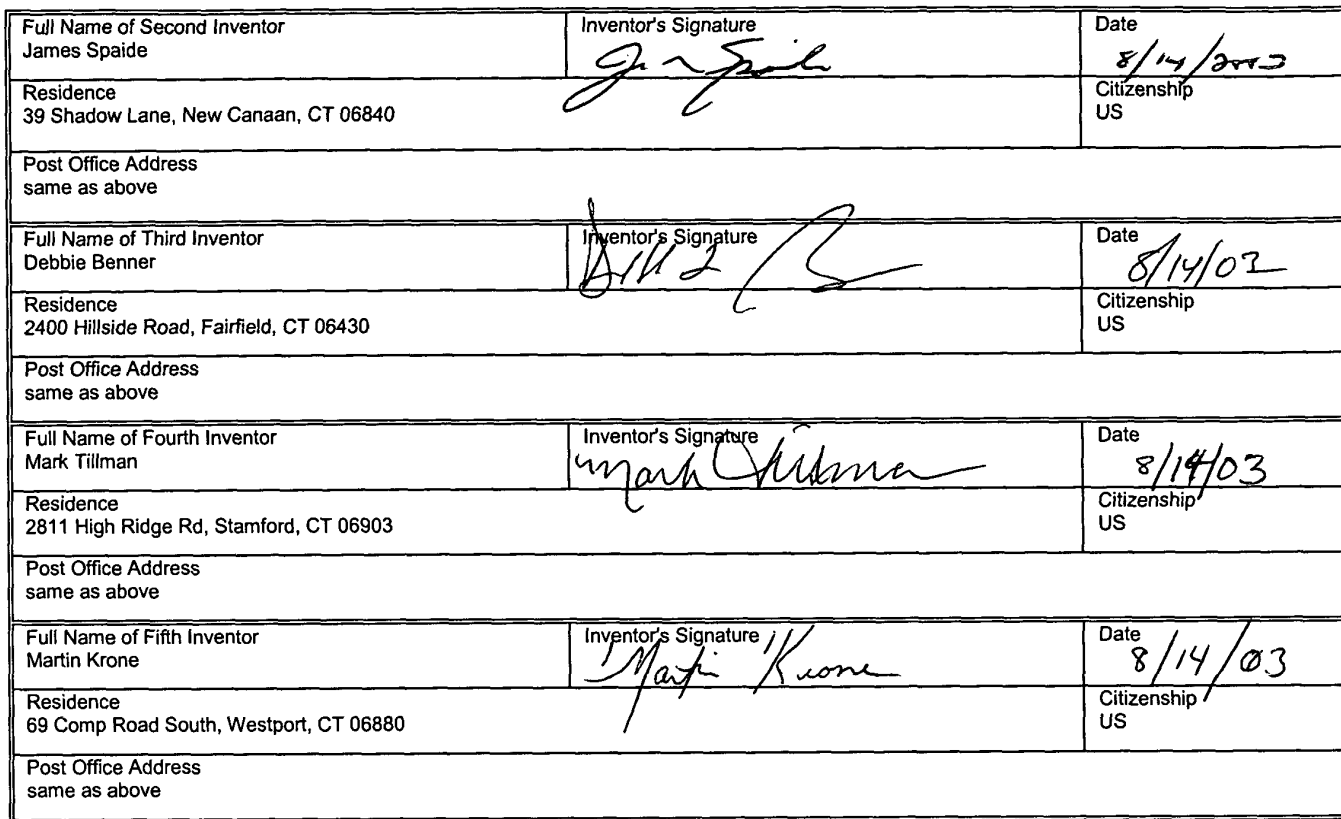 Full Name of Second Inventor
James Spaide
Inventor's Signature
Date
8/14/2003
Residence
39 Shadow Lane, New Canaan, CT 06840
Citizenship
US
Post Office Address
same as above
Full Name of Third Inventor
Debbie Benner
Inventor's Signature
Date
8/14/03
Residence
2400 Hillside Road, Fairfield, CT 06430
Citizenship
US
Post Office Address
same as above
Full Name of Fourth Inventor
Mark Tillman
Inventor's Signature
Mark Tillman
Date
8/14/03
Residence
2811 High Ridge Rd, Stamford, CT 06903
Citizenship
US
Post Office Address
same as above
Full Name of Fifth Inventor
Martin Krone
Inventor's Signature
Martin Krone
Date
8/14/03
Residence
69 Comp Road South, Westport, CT 06880
Citizenship
US
Post Office Address
same as above